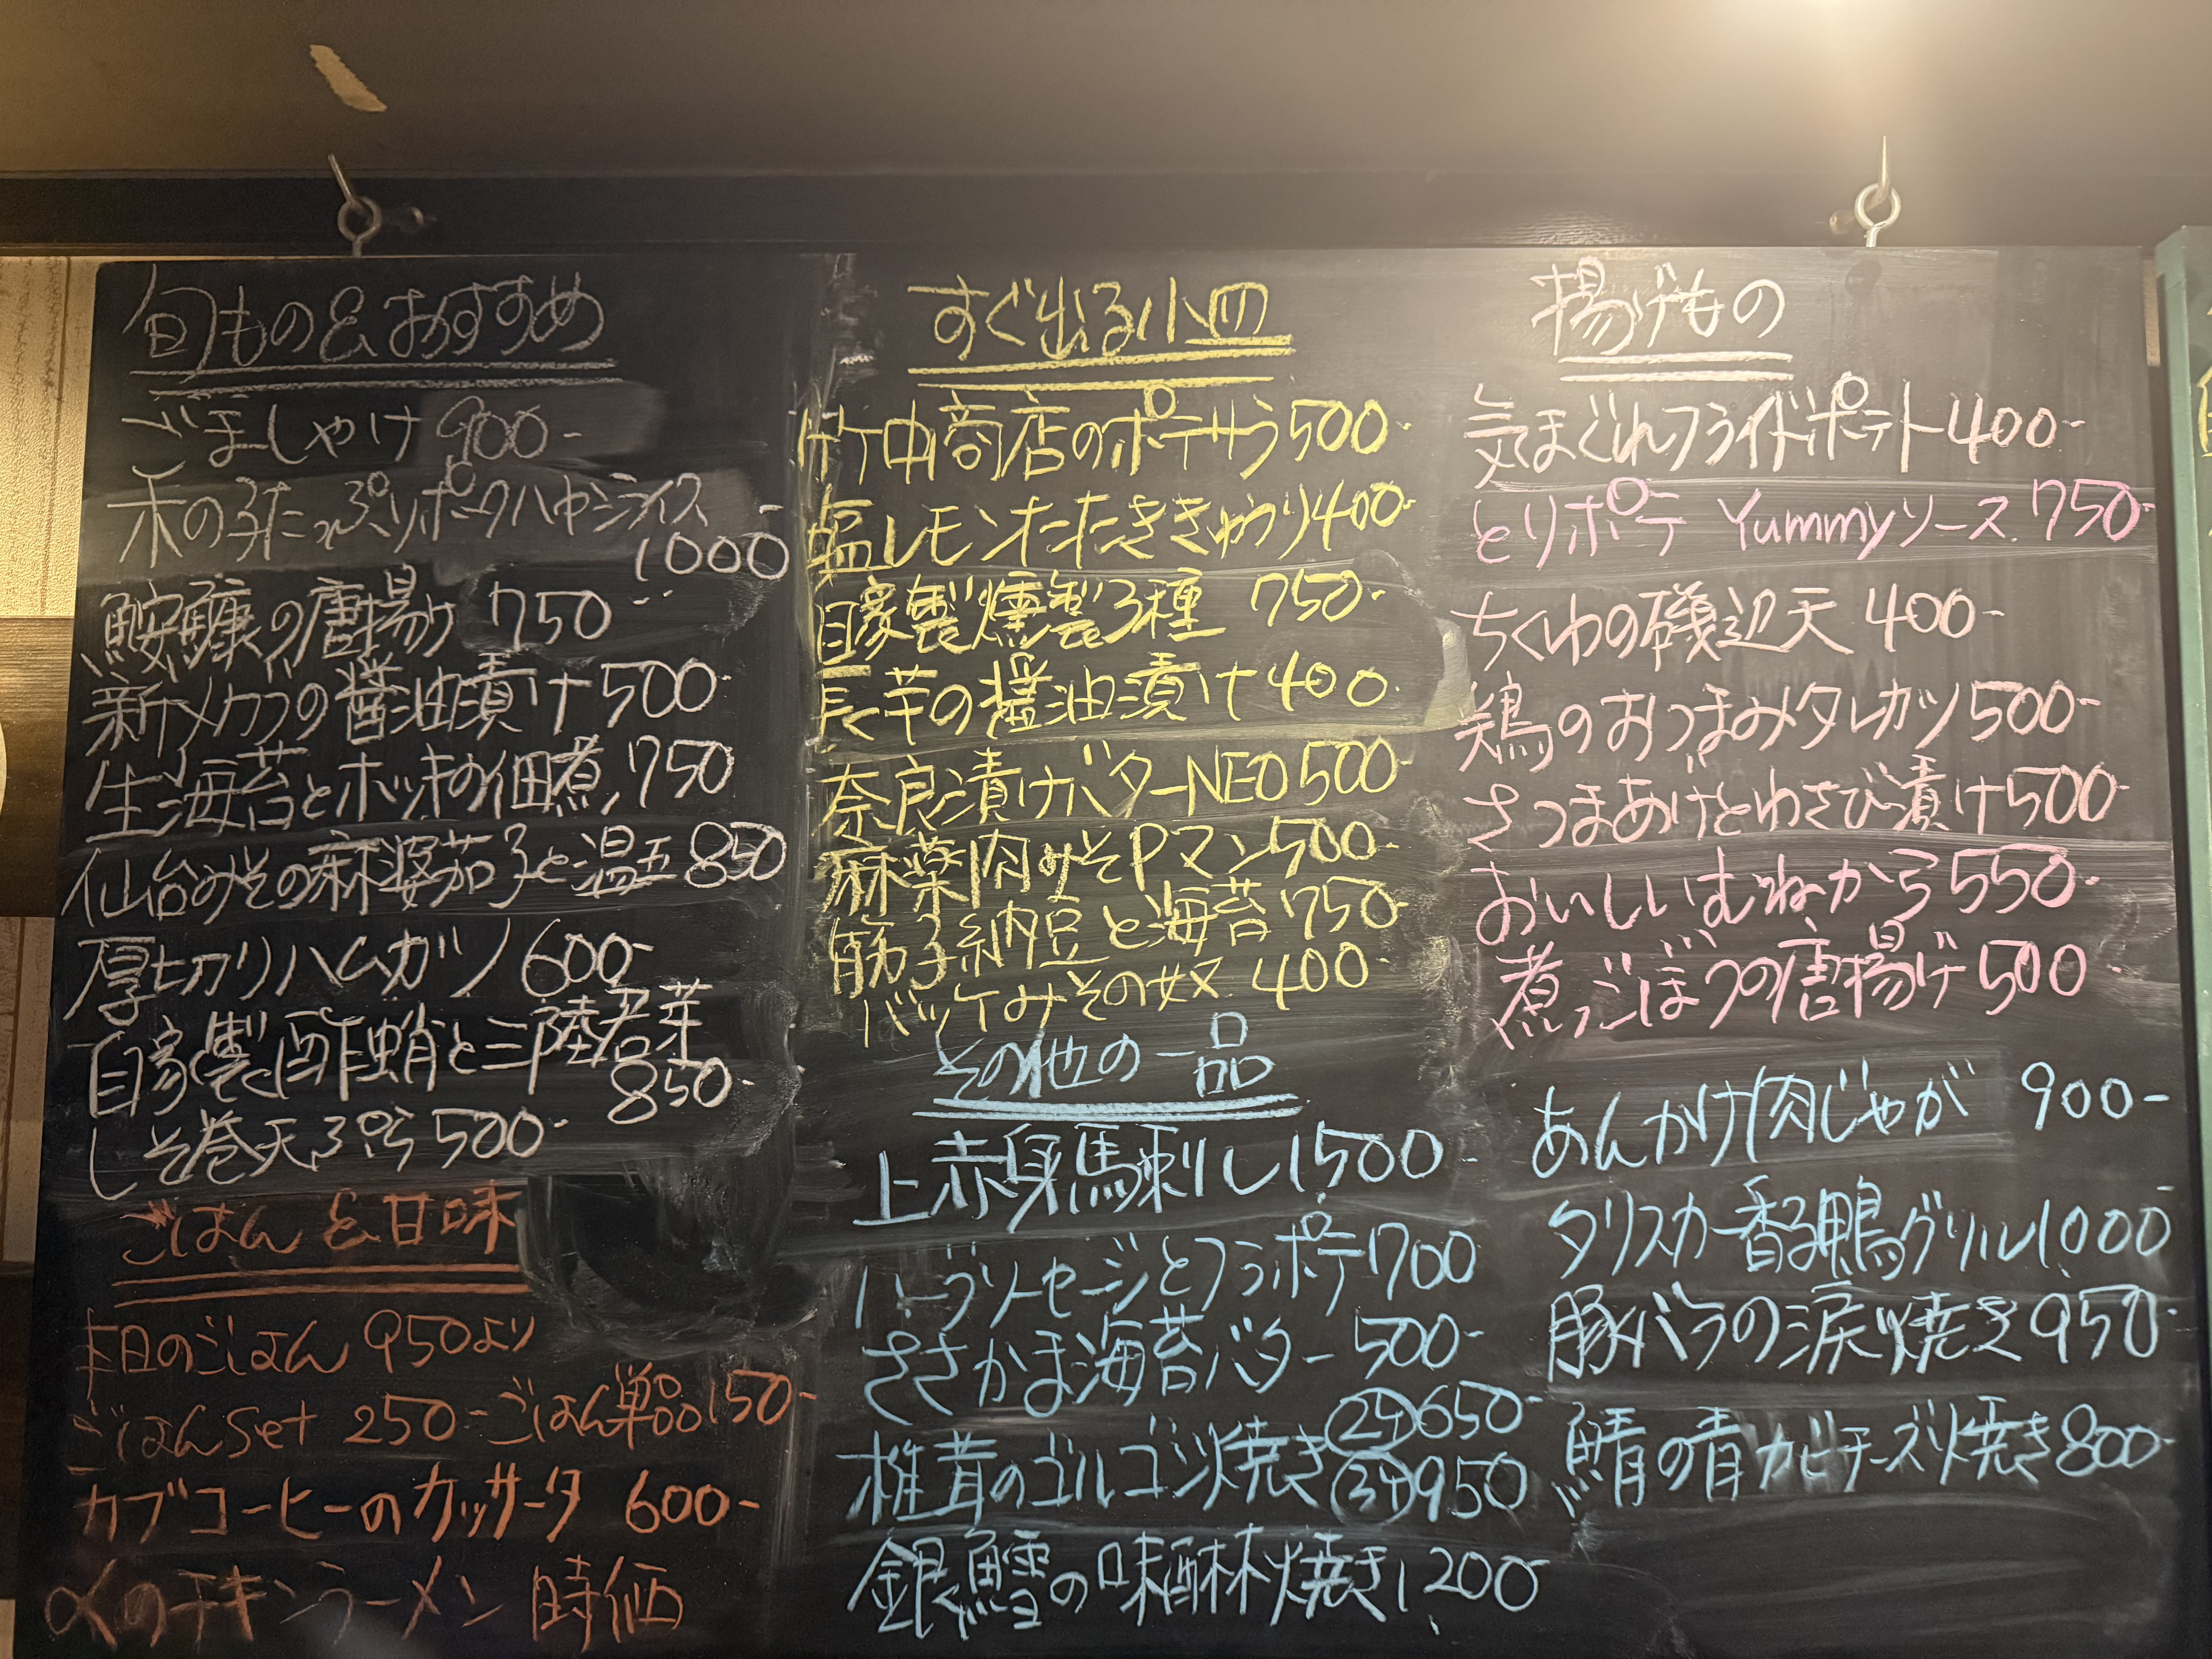 旬もの&おすすめ
ごましゃけ 900-
木の子たっぷりポークハヤシライス
1000-
鮟鱇の唐揚げ 750-
新メカブの醤油漬け500-
生海苔とホッキの佃煮 750
仙台みその麻婆茄子と温玉 850
厚切りハムカツ 600-
自家製〆酢蛸と三陸若芽
850-
しそ巻天ぷら 500-
ごはん&甘味
本日のごはん 950より
ごはんset 250- ごはん単品150-
カブコーヒーのカッサータ 600-
αのチキンラーメン 時価
すぐ出る小皿
竹中商店のポテサラ500-
塩レモンたたききゅうり400-
自家製燻製3種 750-
長芋の醤油漬け400-
奈良漬けバターNEO500-
麻薬肉みそPマン500-
筋子納豆と海苔750-
バッケみその奴 400-
その他の一品
上赤身馬刺し1,500-
ハーブソーセージとフラポテ700
ささかま海苔バター 500-
椎茸のゴルゴンゾ焼き②ケ650-
③ケ950
銀鱈の味醂焼き1,200-
揚げもの
気まぐれフライドポテト400-
とりポテ Yummyソース 750-
ちくわの磯辺天 400-
鶏のおつまみタレカツ500-
さつまあげとわさび漬け500-
おいしいむねから550-
煮っごぼうの唐揚げ500-
あんかけ肉じゃが 900-
タリスカー香る鴨グリル1,000-
豚バラの涙焼き950-
鯖の青カビチーズ焼き800-